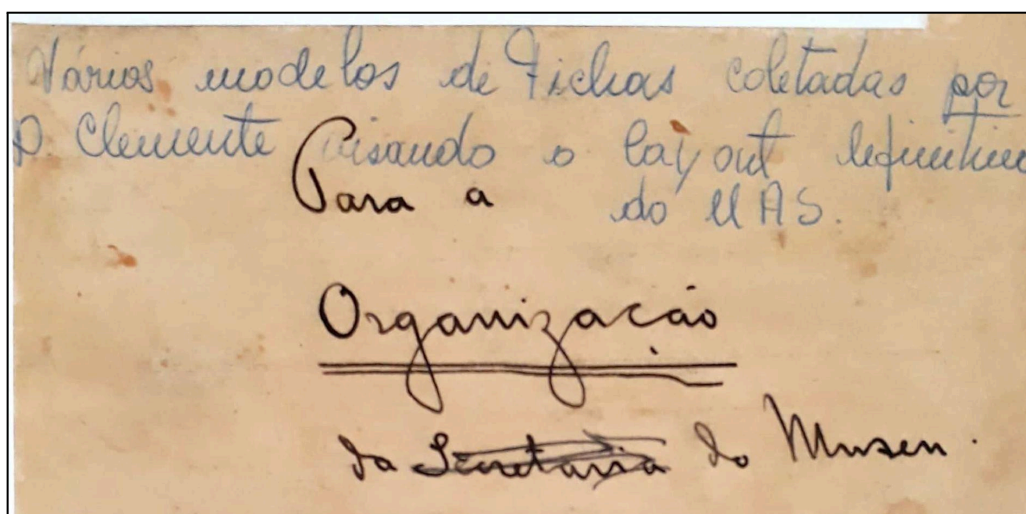 Vários modelos de Fichas coletadas por
D Clemente visando o layout definitivo
Para a do MAS.
Organização
da Secretaria do Museu.